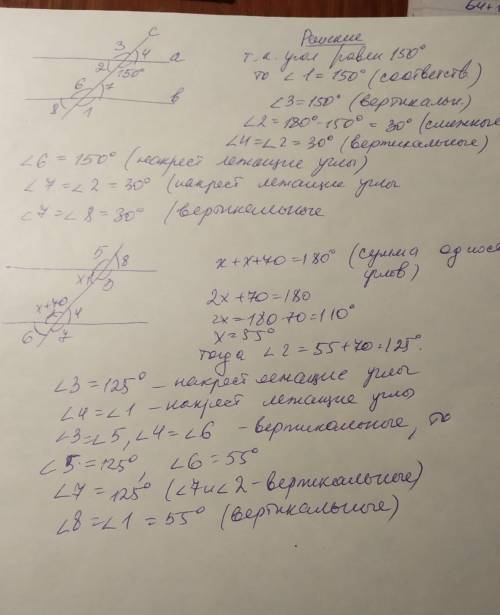 64+
Решение
с
3 4 а
2 150°
6 7
8 1 в
т.к. угол равен 150°
то ∠1 = 150° (соответств.)
∠3 = 150° (вертикальн.)
∠2 = 180° - 150° = 30° (смежные)
∠4 = ∠2 = 30° (вертикальные)
∠6 = 150° (накрест лежащие углы)
∠7 = ∠2 = 30° (накрест лежащие углы
∠7 = ∠8 = 30° (вертикальные
5 8
x 3
x+70 4
6 7
x + x + 70 = 180° (сумма одност
углов)
2x + 70 = 180
2x = 180 - 70 = 110°
x = 55°
тогда ∠2 = 55 + 70 = 125°.
∠3 = 125° - накрест лежащие углы
∠4 = ∠1 - накрест лежащие углы
∠3 = ∠5, ∠4 = ∠6 - вертикальные, то
∠5 = 125°, ∠6 = 55°
∠7 = 125° (∠7 и ∠2 - вертикальные)
∠8 = ∠1 = 55° (вертикальные)